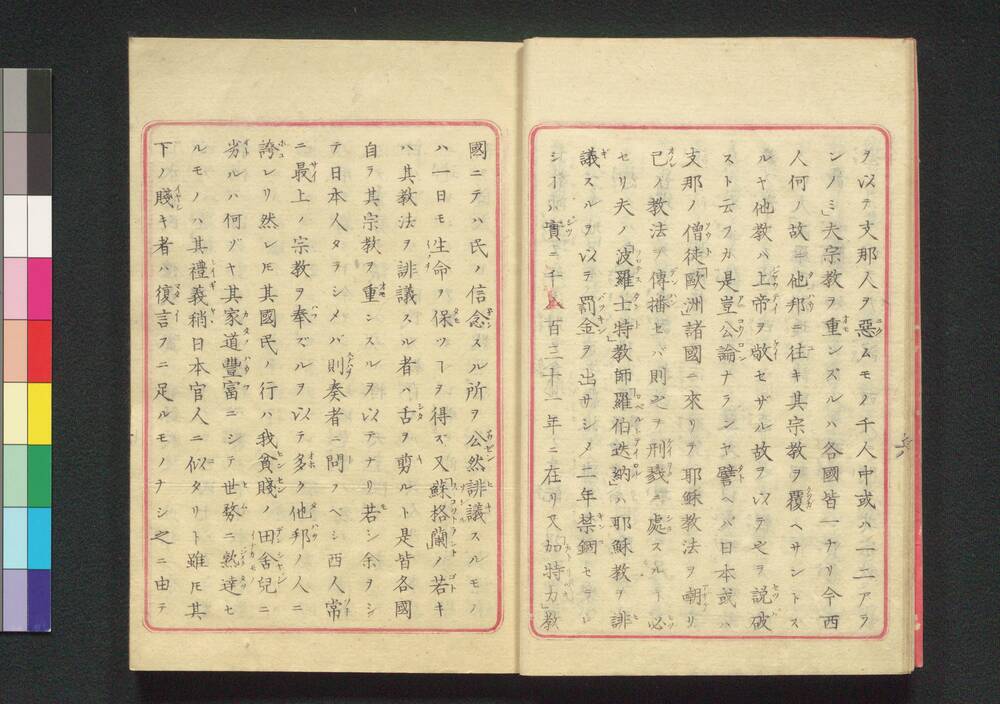 ヲ以テ支那人ヲ惡ムモノ千人中或ハ一二アラ
ンノミ」夫宗教ヲ重ンズルハ各國皆一ナリ今西
人何ノ故ニ他邦ニ往キ其宗教ヲ覆ヘサントス
ルヤ他教ハ上帝ヲ敬セザル故ヲ以テ之ヲ説破
スト云フカ是豈公論ナランヤ譬ヘバ日本或ハ
支那ノ僧徒「歐洲」諸國ニ來リテ耶穌教法ヲ嘲リ
己ノ教法ヲ傳播セバ則之ヲ刑戮ニ處スルヿ必
セリ夫ノ「波羅士特」教師「羅伯迭納」ハ耶穌教ヲ誹
議スルヲ以テ罰金ヲ出サシメ二年禁錮セラレ
シハ實ニ千八百三十一年ニ在リ又「加特力」教
國ニテハ民ノ信念スル所ヲ公然誹議スルモノ
ハ一日モ生命ヲ保ツヿヲ得ズ又「蘇格蘭」ノ若キ
ハ其教法ヲ誹議スル者ハ古ヲ剪ルト是皆各國
自ラ其宗教ヲ重ンスルヲ以テナリ若シ余ヲシ
テ日本人タラシメバ則奏者ニ問ノベシ西人常
ニ最上ノ宗教ヲ奉ズルヲ以テ多ク他邦ノ人ニ
誇レリ然レ𪜈其國民ノ行ハ我貧賤ノ田舎兒ニ
劣ルハ何ゾヤ其家道豐富ニシテ世務ニ熟達セ
ルモノハ其禮義稍日本官人ニ似タリト雖𪜈其
下ノ賤キ者ハ復言フニ足ルモノナシ之ニ由テ